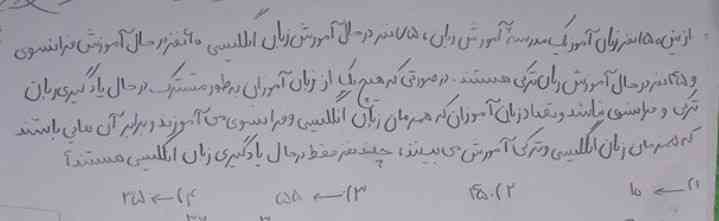 از بین ۱۵۰ نفر زبان آموز یک مدرسهٔ آموزش زبان، ۷۵ نفر در حال آموزش زبان انگلیسی ۶۰ نفر در حال آموزش فرانسوی
و ۴۵ نفر در حال آموزش زبان ترکی هستند. در صورتی که هیچ یک از زبان آموزان بطور مشترک در حال یادگیری زبان
ترکی و فرانسوی نباشند و تعداد زبان آموزان که همزمان زبان انگلیسی و فرانسوی می آموزند دو برابر آن هایی باشند
که همزمان زبان انگلیسی و ترکی آموزش می بینند، چند نفر فقط در حال یادگیری زبان انگلیسی هستند؟
۱) ← ۱۰ ۲) ۴۵ ۳) ← ۵۵ ۴) ← ۳۵